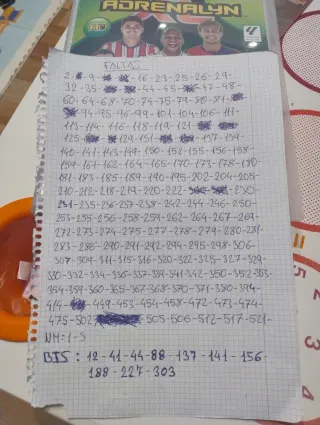 ADRENALYN
FALTAS
2 - 9 - 16 - 23 - 25 - 26 - 29 -
32 - 35 - 44 - 45 - 47 - 48 -
60 - 64 - 68 - 70 - 74 - 75 - 79 - 80 - 81 -
94 - 95 - 96 - 99 - 101 - 104 - 106 - 111 -
113 - 114 - 116 - 118 - 119 - 121 -
125 - 129 - 151 - 137 - 139 -
140 - 141 - 143 - 149 - 150 - 152 - 155 - 156 - 158 -
159 - 161 - 162 - 164 - 165 - 170 - 173 - 178 - 180 -
181 - 183 - 185 - 189 - 190 - 195 - 202 - 204 - 205 -
210 - 212 - 218 - 219 - 220 - 222 - 230 -
231 - 235 - 236 - 237 - 238 - 242 - 244 - 246 - 250 -
253 - 255 - 256 - 258 - 259 - 262 - 264 - 267 - 269 -
272 - 273 - 274 - 275 - 277 - 278 - 279 - 280 - 281 -
283 - 286 - 290 - 291 - 292 - 294 - 295 - 298 - 306 -
307 - 309 - 311 - 315 - 316 - 320 - 322 - 325 - 327 - 329 -
330 - 332 - 334 - 336 - 337 - 339 - 341 - 342 - 350 - 352 - 353 -
354 - 359 - 360 - 365 - 367 - 368 - 370 - 371 - 380 - 394 -
414 - 449 - 453 - 454 - 458 - 472 - 473 - 474 -
475 - 502 - 505 - 506 - 512 - 517 - 521 -
NM=1-3
BIS: 12 - 41 - 44 - 88 - 137 - 141 - 156 -
188 - 227 - 303